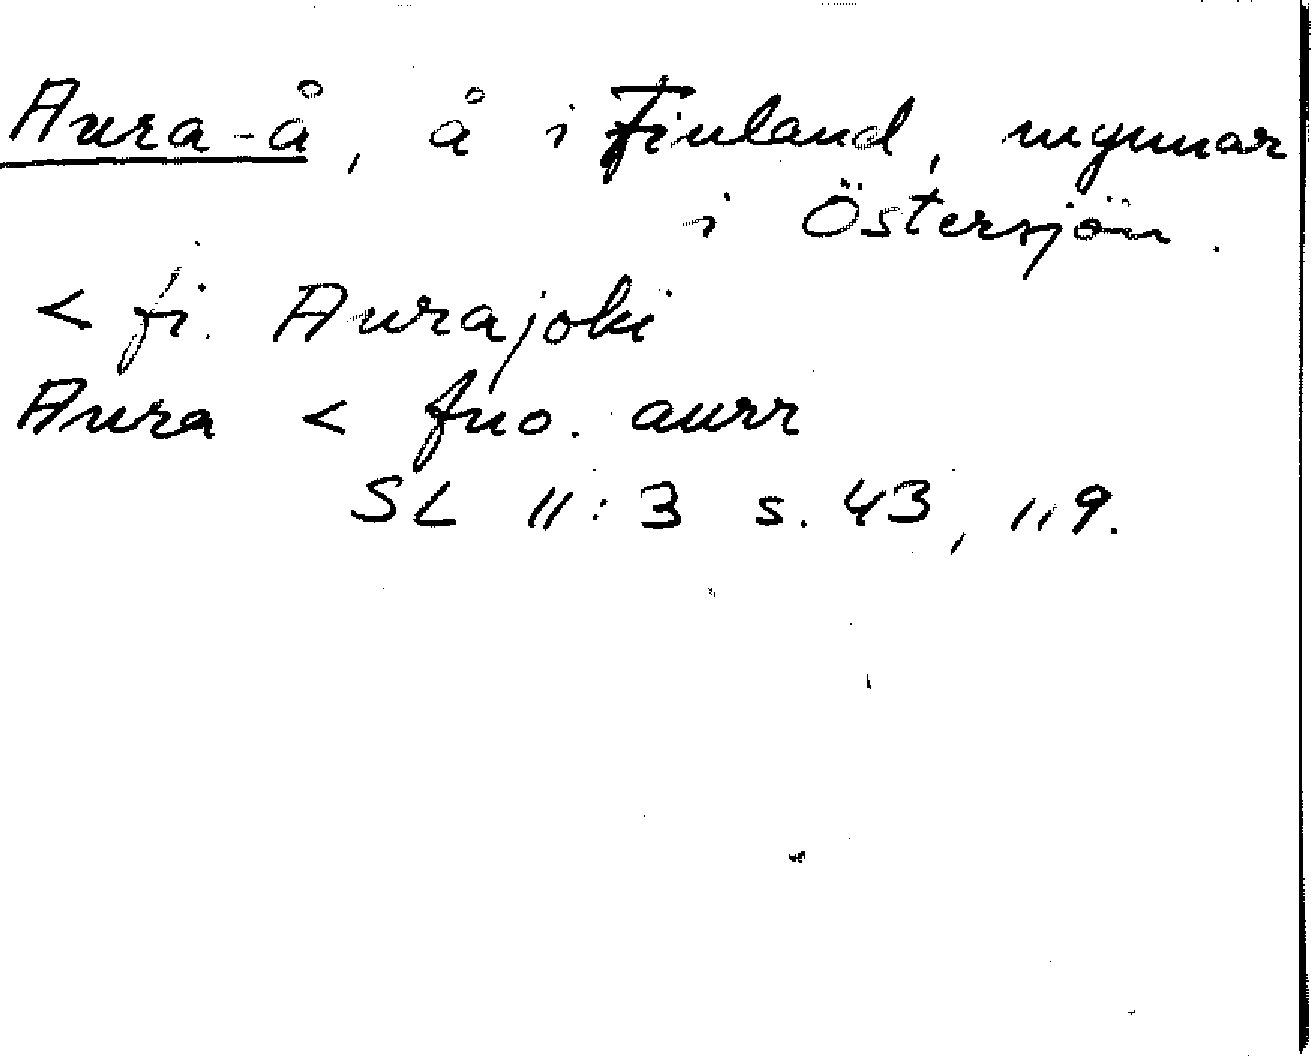 Aura-å, å i Finland, mynnar
i Östersjön.
< fi. Aurajoki
Aura < fno. aurr
SL 11:3 s. 43, 119.